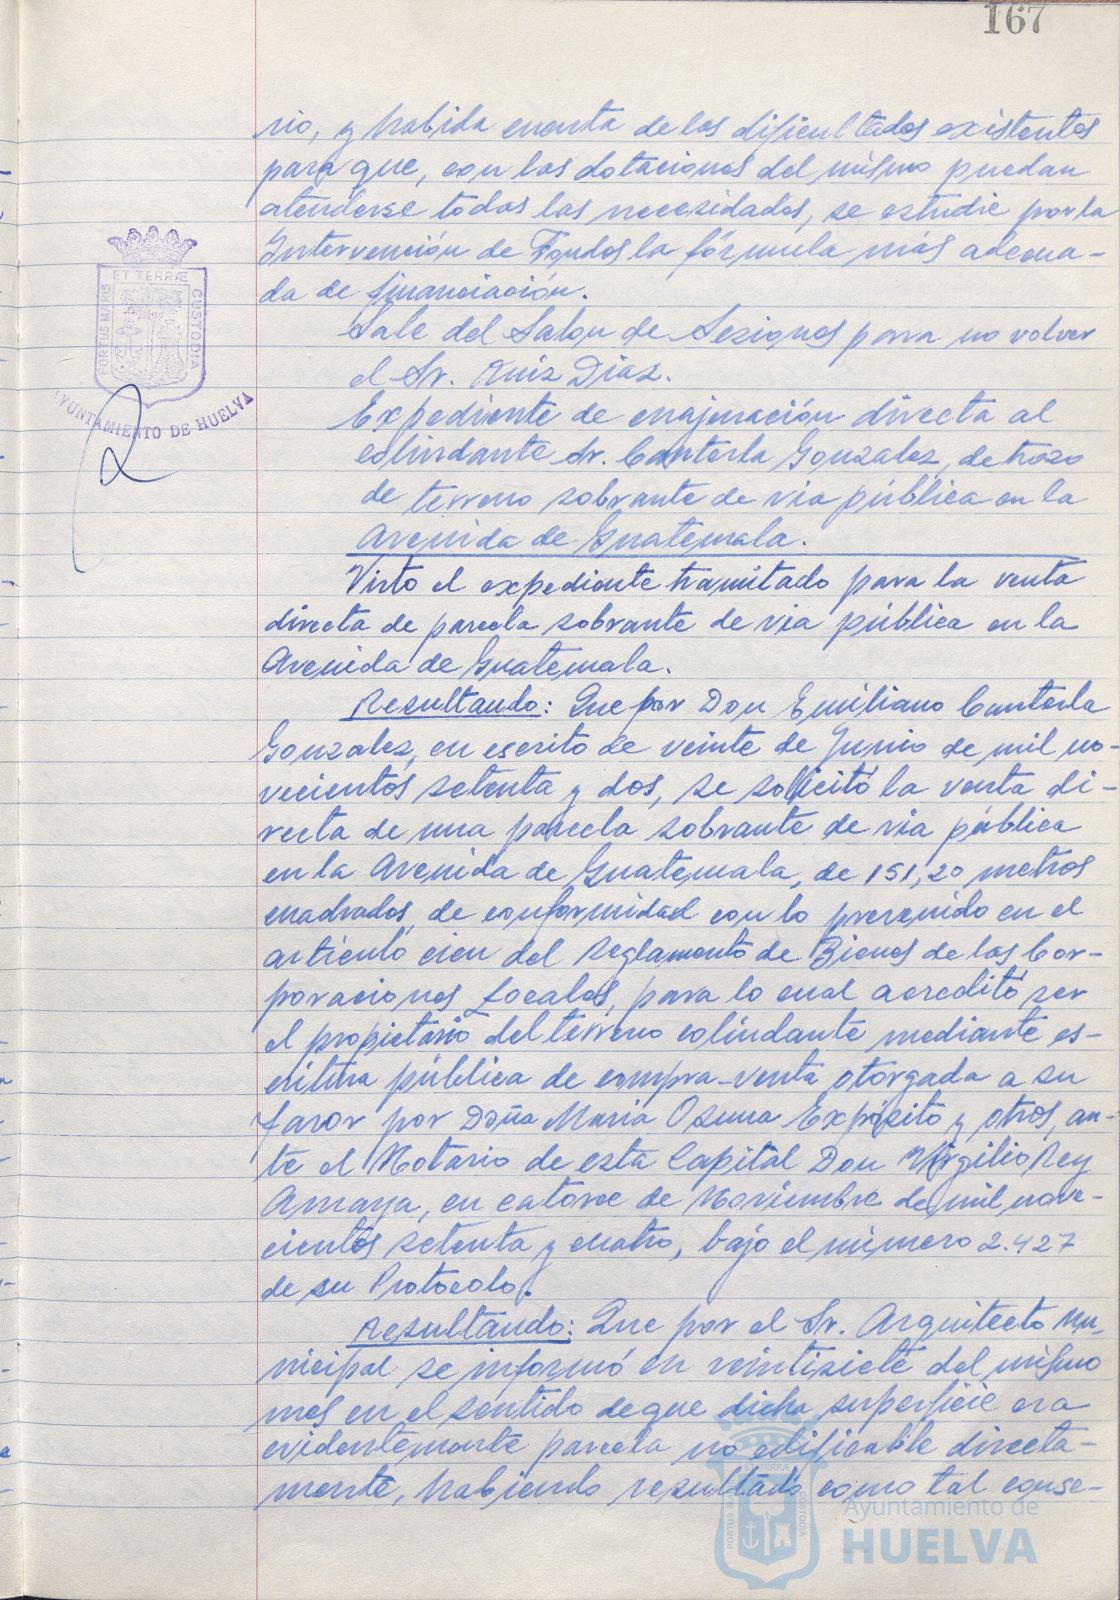 167
rio, y habida cuenta de las dificultades existentes
para que, con las dotaciones del mismo puedan
atenderse todas las necesidades, se estudie por la
Intervención de Fondos la fórmula más adecua-
da de financiación.
Sale del Salon de Sesiones para no volver
el Sr. Ruiz Diaz.
Expediente de enajenación directa al
colindante Sr. Canterla Gonzalez, de trozo
de terreno sobrante de via pública en la
Avenida de Guatemala.
Visto el expediente tramitado para la venta
directa de parcela sobrante de via pública en la
Avenida de Guatemala.
Resultando: Que por Don Emiliano Canterla
Gonzalez, en escrito de veinte de Junio de mil no-
vecientos setenta y dos, se solicitó la venta di-
recta de una parcela sobrante de via pública
en la Avenida de Guatemala, de 151,20 metros
cuadrados, de conformidad con lo prevenido en el
articulo cien del Reglamento de Bienes de las Cor-
poraciones Locales, para lo cual acreditó ser
el propietario del terreno colindante mediante es-
critura pública de compra-venta otorgada a su
favor por Doña Maria Osuna Expósito y otros, an-
te el Notario de esta Capital Don Virgilio Rey
Amaya, en catorce de Noviembre de mil nove-
cientos setenta y cuatro, bajo el número 2.427
de su Protocolo.
Resultando: Que por el Sr. Arquitecto Mu-
nicipal se informó en veintisiete del mismo
mes en el sentido de que dicha superficie era
evidentemente parcela no edificable directa-
mente, habiendo resultado como tal conse-
PORTUS MARIS ET TERRÆ CUSTODIA
AYUNTAMIENTO DE HUELVA
PORTUS MARIS ET TERRÆ CUSTODIA
Ayuntamiento de
HUELVA